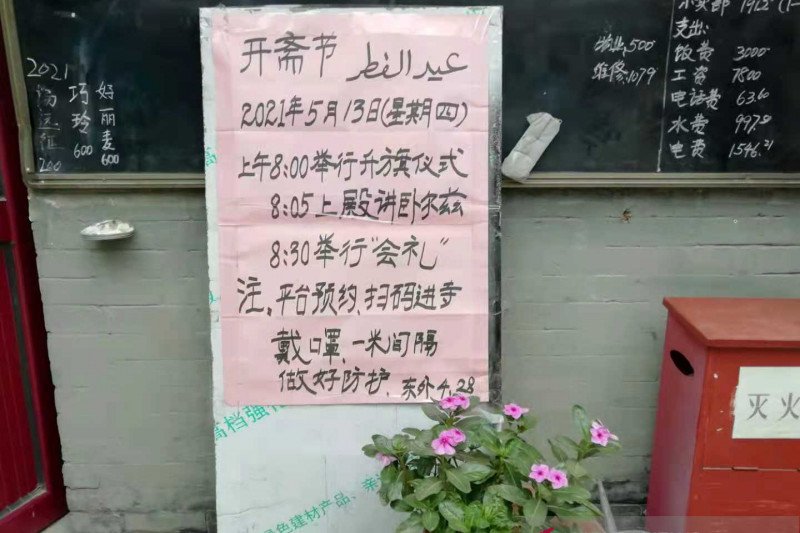 2021
巧玲 600
好一丽麦 600
200
开斋节 عيد الفطر
2021年5月13日(星期四)
上午8:00举行升旗仪式
8:05上殿讲卧尔兹
8:30举行"会礼"
注、平台预约、扫码进寺
戴口罩、一米间隔
做好防护、东外4.28
高档强
绿色建材产品、亲
支出:
饭费 3000
工资 7800
电话费 63.6
水费 997.8
电费 1546.21
维修,1079
500
灭火